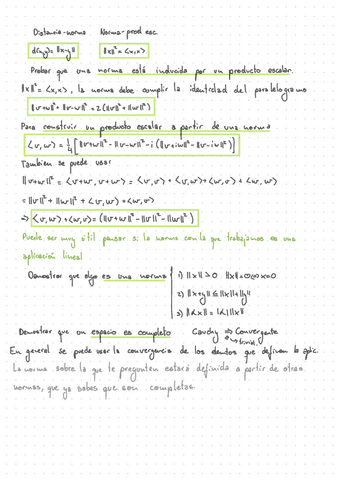 Distancia-norma Norma-prod esc.
d(x,y)= ||x-y|| ||x||² = <x,x>
Probar que una norma está inducida por un producto escalar.
||x||² = <x,x>, la norma debe cumplir la identidad del paralelogramo
||v+w||² + ||v-w||² = 2(||v||² + ||w||²)
Para construir un producto escalar a partir de una norma
<v,w> = 1/4 [||v+w||² - ||v-w||² - i (||v+iw||² - ||v-iw||²)]
Tambien se puede usar
||v+w||² = <v+w, v+w> = <v,v> + <v,w> + <w,v> + <w,w>
= ||v||² + ||w||² + <v,w> + <w,v>
⇒ <v,w> + <w,v> = (||v+w||² - ||v||² - ||w||²)
Puede ser muy útil pensar si la norma con la que trabajamos es una
aplicación lineal
Demostrar que algo es una norma
1) ||x|| ≥ 0 ||x|| = 0 ⇔ x = 0
2) ||x+y|| ≤ ||x|| + ||y||
3) ||λx|| = |λ| ||x||
Demostrar que un espacio es completo Cauchy ⇒ Convergente
En general se puede usar la convergencia de los que definen la aplic.
La norma sobre la que te pregunten estará definida a partir de otras
normas, que ya sabes que son completas.